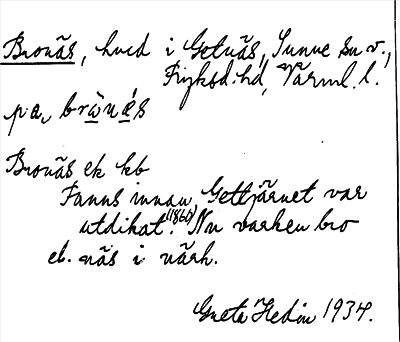 Bronäs, hvcd i Getnäs, Sunne sn v.,
Fryksd. hd, Värml. l.
pa, brὼ̲nę́s
Bronäs ek kb
Fanns innan Gettjärnet var
utdikat. (1860) Nu varken bro
el. näs i närh.
Greta Hedin 1934.